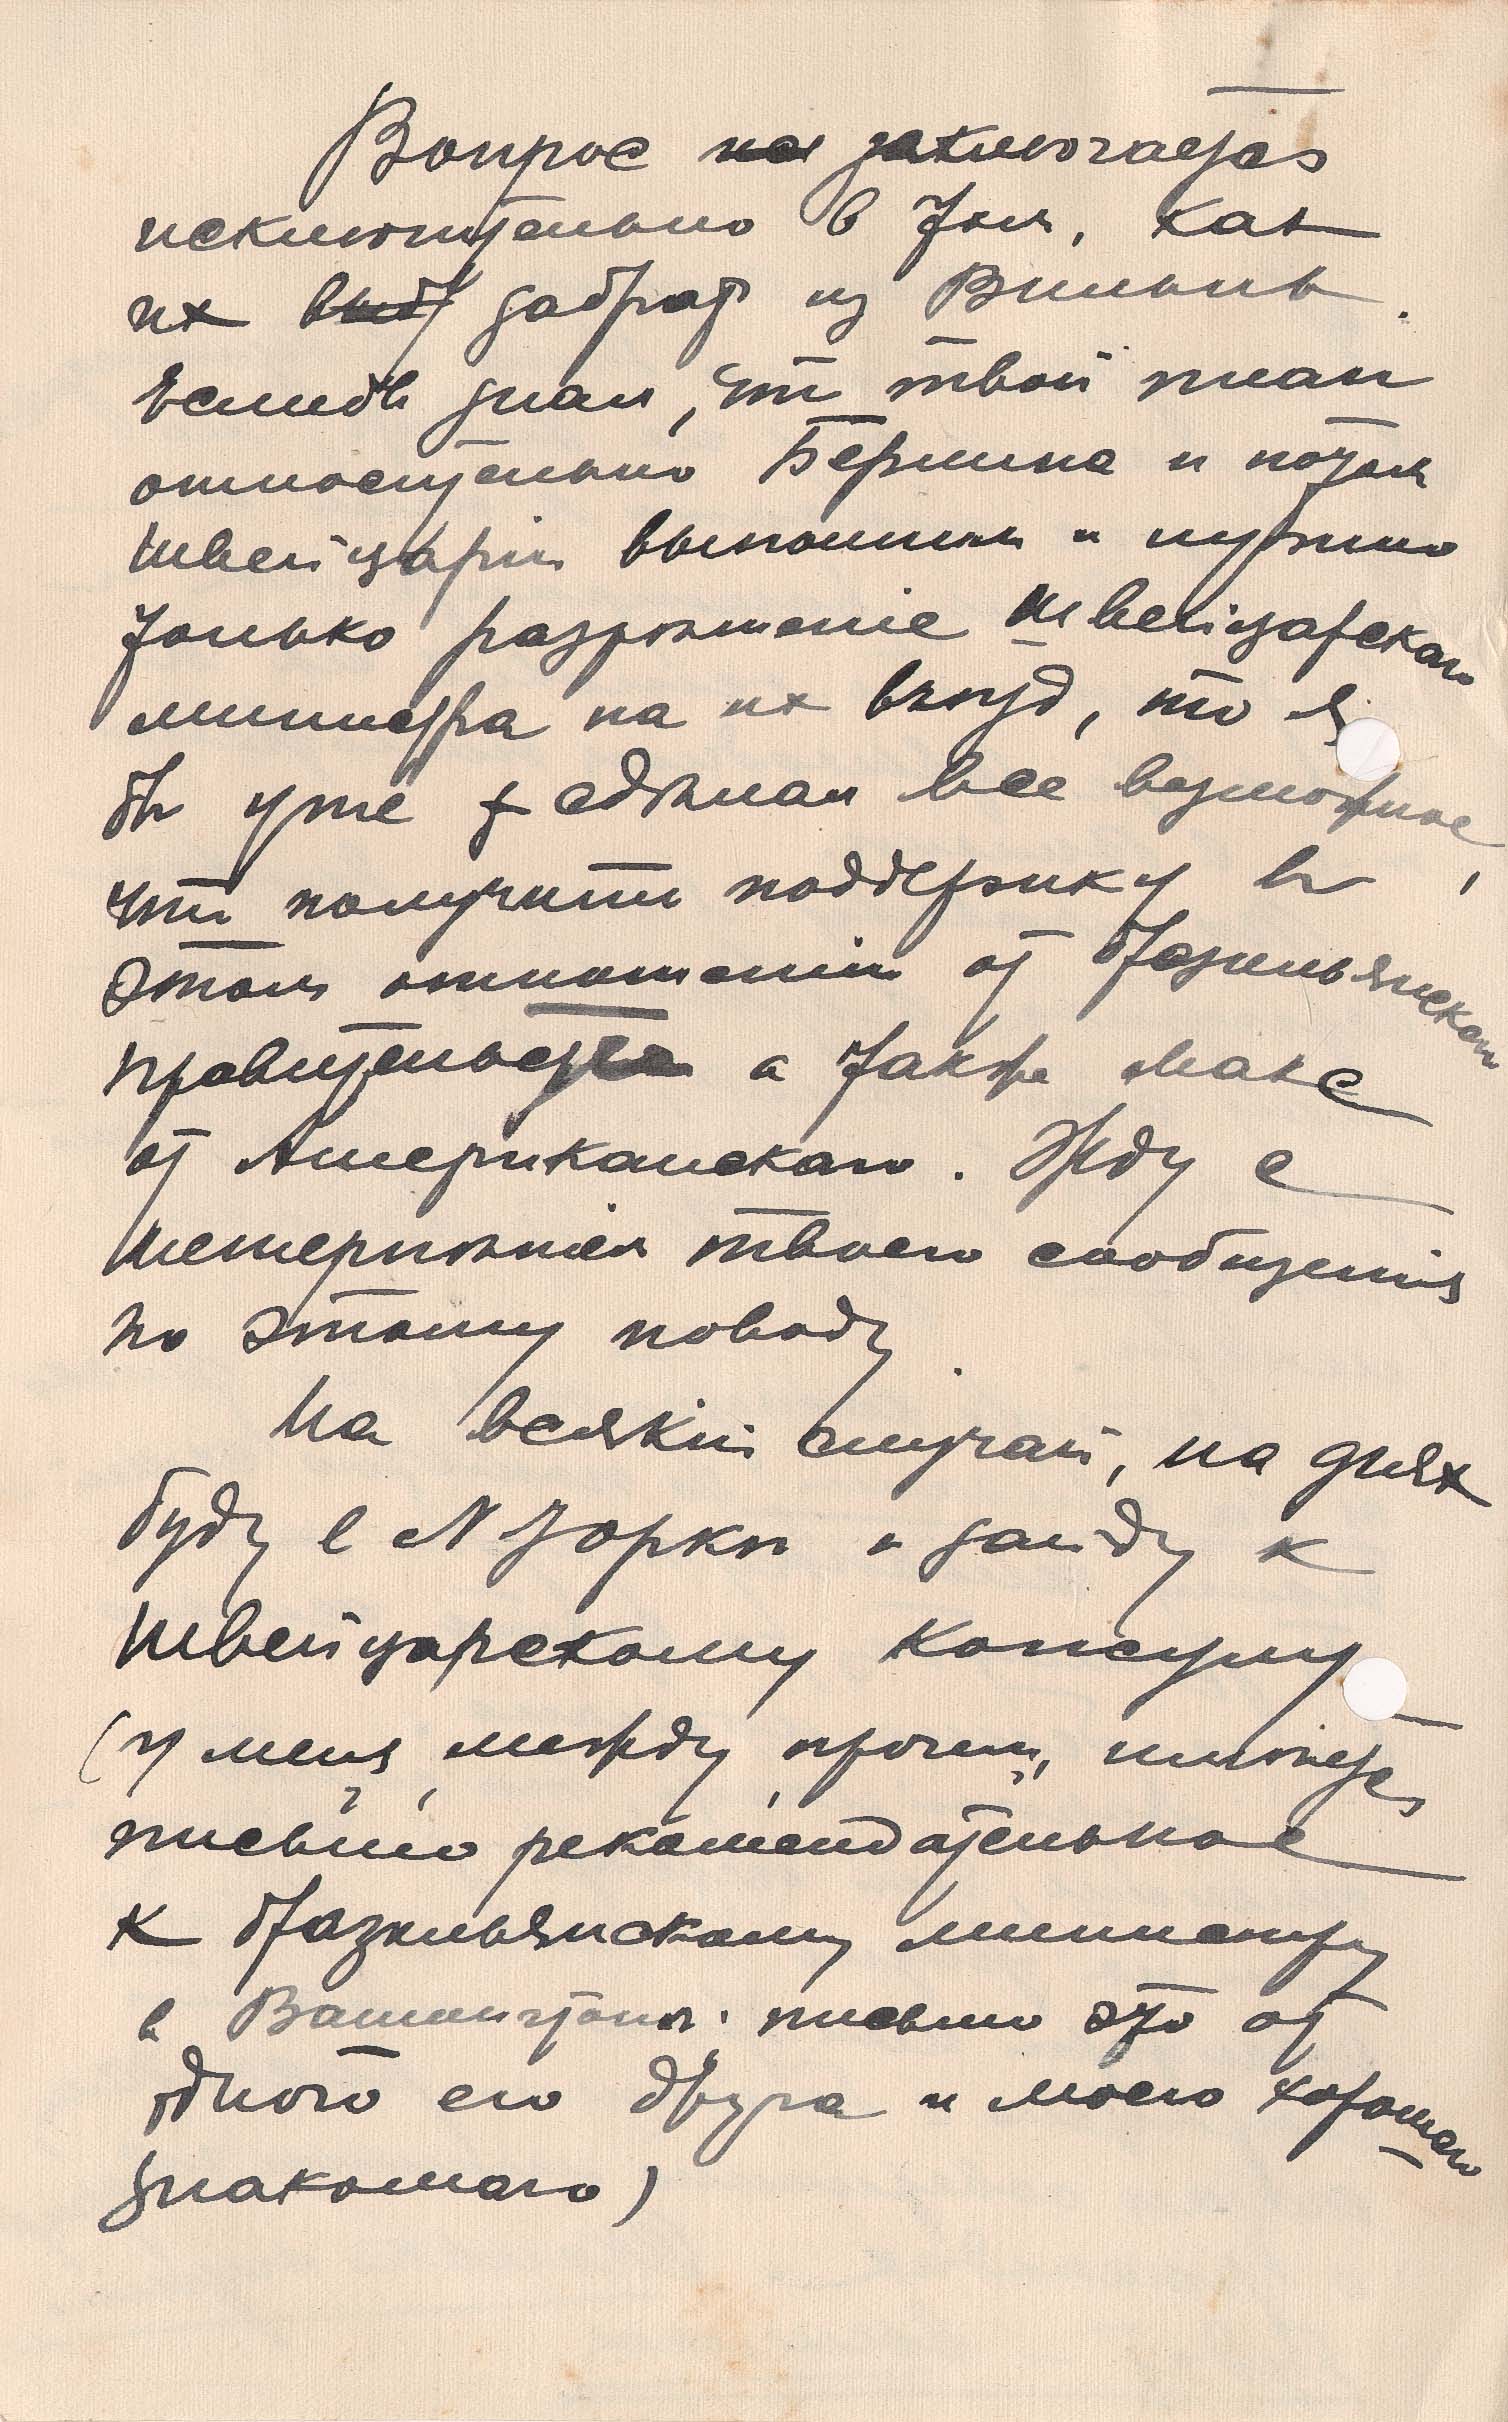 Вопрос заключается
исключительно в том, как
их забрать из Вильны.
Еслиб знал, что твой план
относительно Берлина и потом
Швейцарiи выполним и нужно
только разрѣшенiе Швейцарскаго
министра на их въѣзд, то я
бы уже сдѣлал все возможное,
чтб получить поддержку в
этом отношенiи от Бразильянскаго
правительства а также Макс
от Американскаго. Жду с
нетерпѣнiем твоего сообщенiя
по этому поводу.
На всякiй случай, на днях
буду в N Iоркѣ и зайду к
Швейцарскому консулу
(у меня, между прочим, имѣется
письмо рекомендательное
к Бразильянскому министру
в Вашингтонѣ. письмо это от
одного его друга и моего хорошаго
знакомаго)